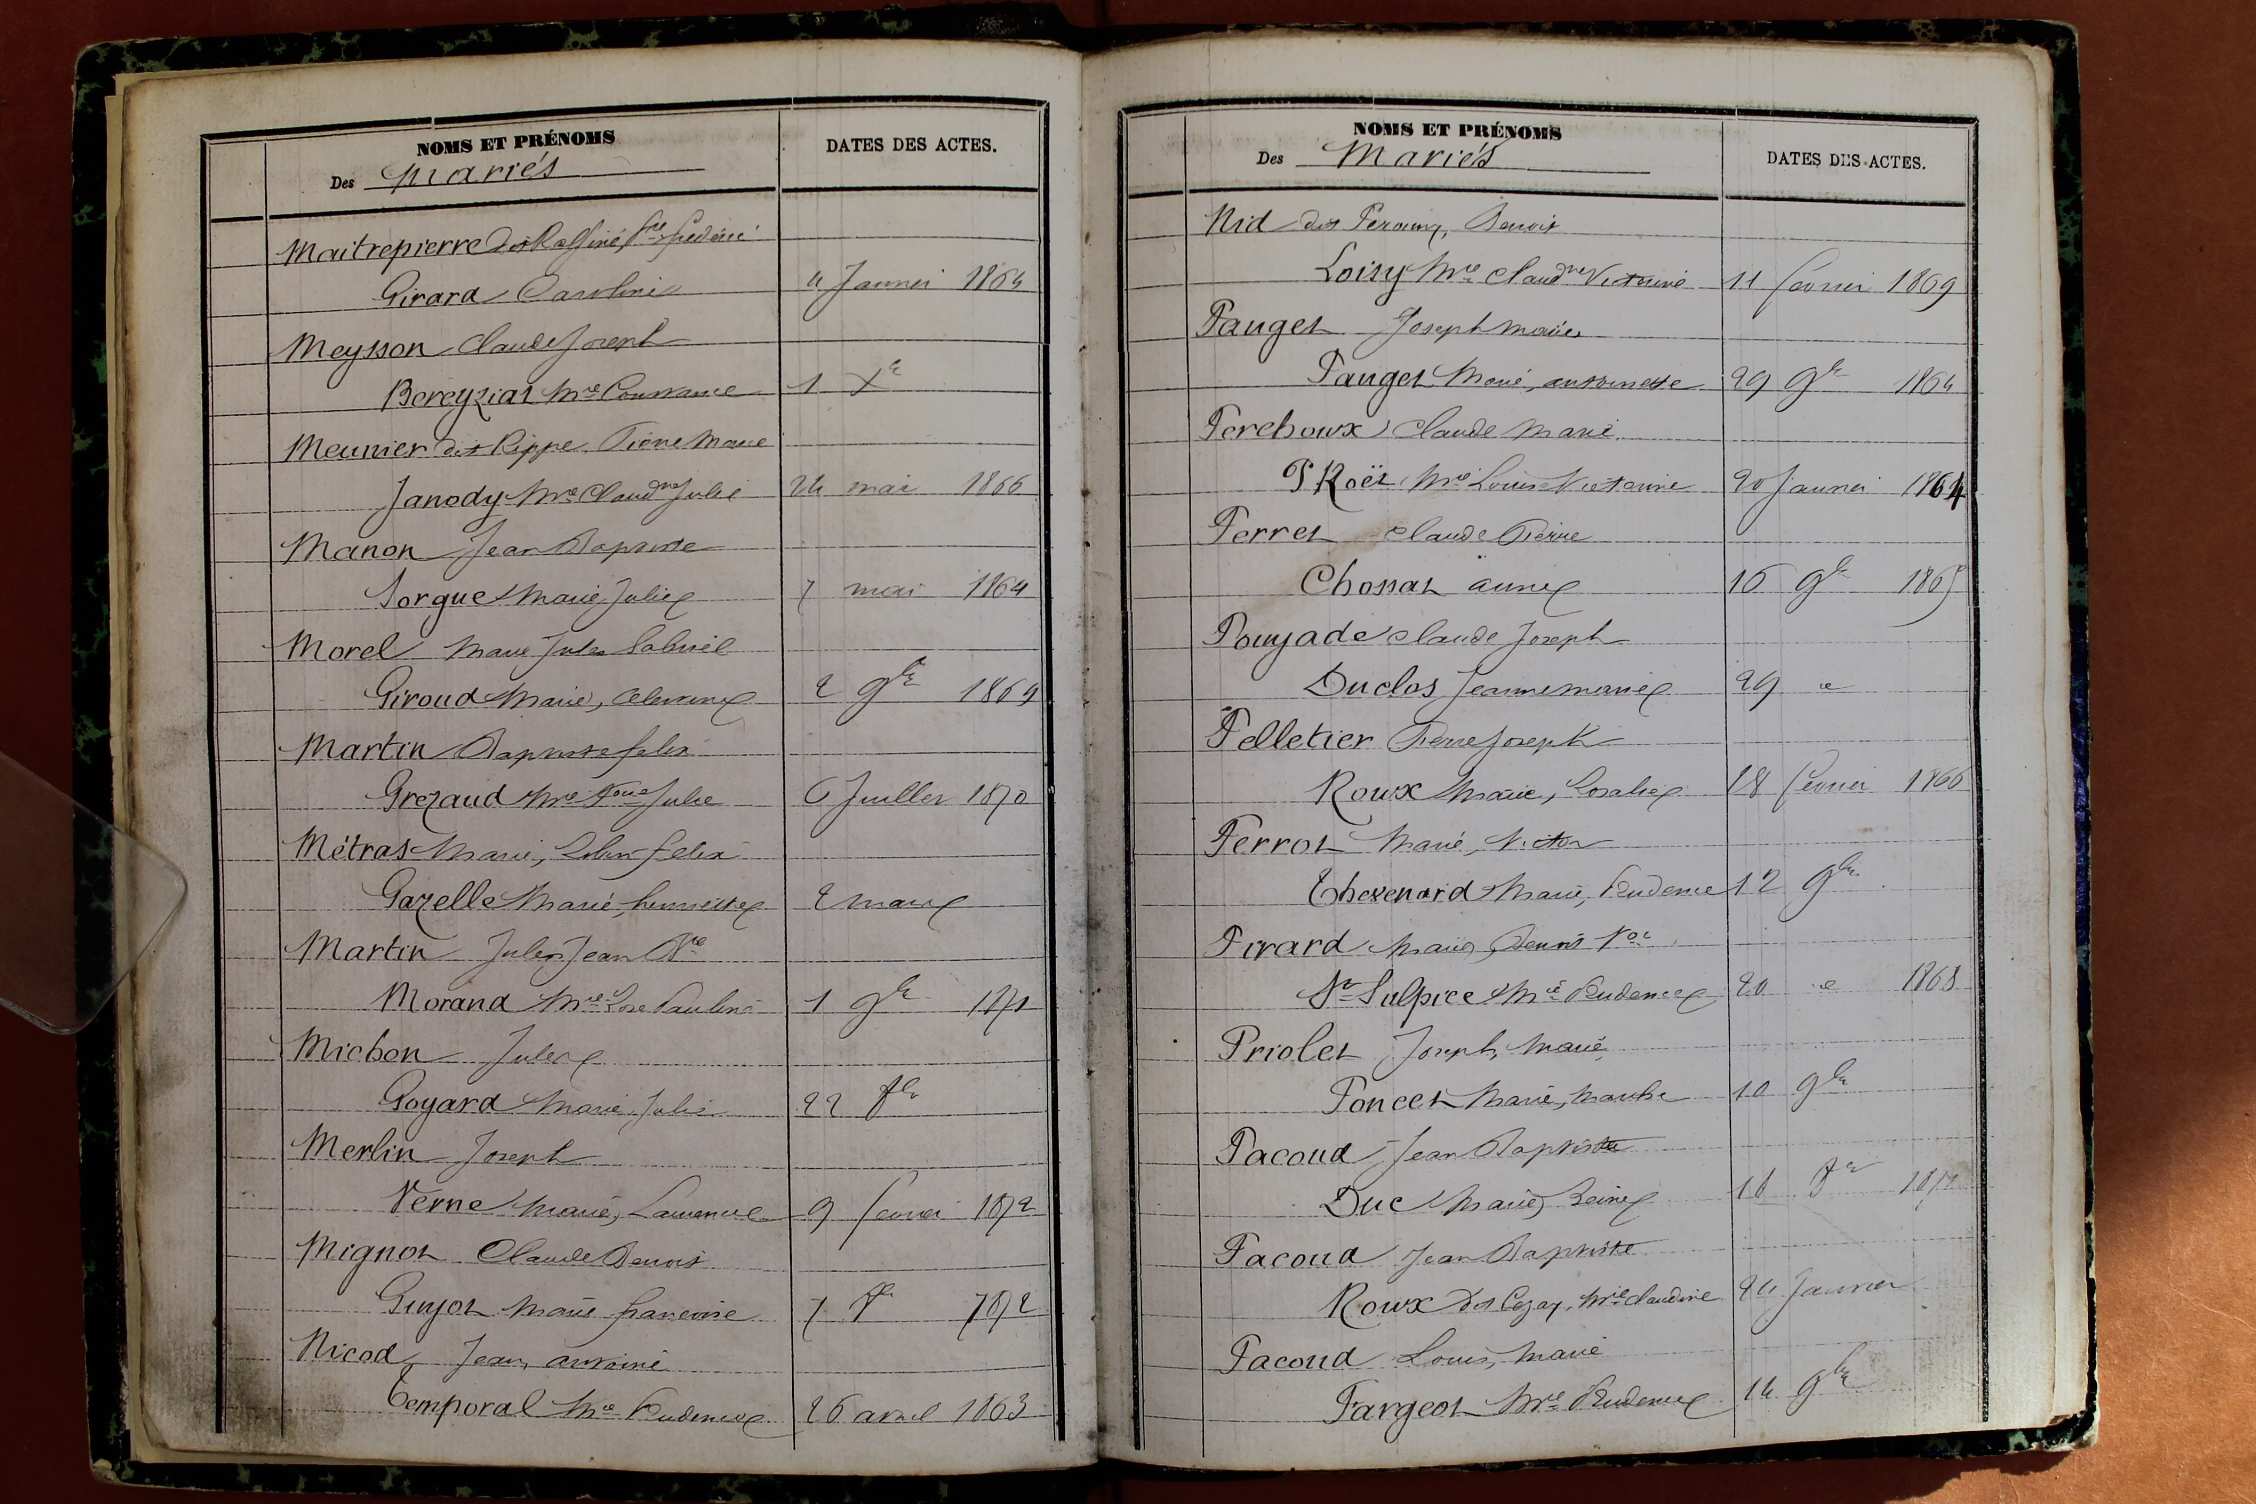 NOMS ET PRÉNOMS
Des Mariés
DATES DES ACTES.
Maitrepierre dit Raffiné, Frédéric
Girard Caroline 4 Janvier 1864
Meysson Claude Joseph
Bereyziat Mie Constance 1 Xe
Meunier dit Rippe Pierre Marie
Janody Mie Claudne Julie 24 mai 1866
Manon Jean Baptiste
Sorgue Marie Julie 7 mai 1864
Morel Marie Jules Gabriel
Giroud Marie, Clémence 2 9bre 1869
Martin Baptiste felix
Grezaud Mie Julie 6 Juillet 1870
Métras Marie, felix
Gazelle Marie henriette 2 mars
Martin Jules Jean Bte
Morand Mie Rose Pauline 1 9bre 1871
Michon Jules
Goyard Marie Julie 22
Merlin Joseph
Verne Marie, Laurence 9 fevrier 1872
Mignot Claude Benoit
Guyot Marie françoise 7 1872
Nicod Jean, antoine
Temporal Mie Prudence 26 avril 1863
NOMS ET PRÉNOMS
Des Mariés
DATES DES ACTES.
Nid dit Benoit
Loisy Mie Claudne Victorine 11 fevrier 1869
Pauget Joseph Marie
Pauget Marie, antoinette 29 9bre 1864
Perehoux Claude Marie
Mie Louise Victorine 20 Janvier 1864
Perret Claude Pierre
Chossat anne 16 9bre 1865
Pouyade Claude Joseph
Duclos Jeanne Marie 29
Pelletier Pierre Joseph
Roux Marie, Rosalie 18 fevrier 1866
Perrot Marie, Victor
Thevenard Marie, Prudence 12 9bre
Pirard Marie, Benoit
St Sulpice Mie Prudence 20 1868
Priolet Joseph, Marie
Poncet Marie, Marthe 10 9bre
Pacoud Jean Baptiste
Duc Marie, Reine 18
Pacoud Jean Baptiste
Roux dit Cozay, Mie Claudine 24 Janvier
Pacoud Louis, Marie
Fargeot Mie Prudence 14 9bre